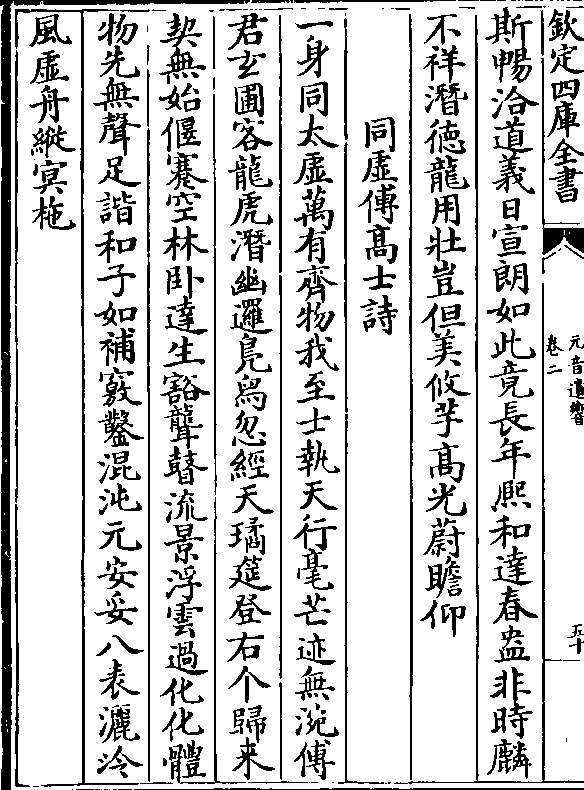 欽定四庫全書
元音遺響
卷二
五十
斯暢洽道義日宣朗如此竟長年熙和達春盎非時麟
不祥潛徳龍用壯豈但美攸芋髙光蔚瞻仰
同虚傅髙士詩
一身同太虚萬有齊物我至士執天行毫芒迹無涴傅
君玄圃客龍虎潛幽邏鳬舄忽經天璚筵登右个歸来
契無始偃蹇空林卧達生豁聾瞽流景浮雲過化化體
物先無聲足諧和子如補竅鑿混沌元安妥八表灑泠
風虚舟縱冥柂